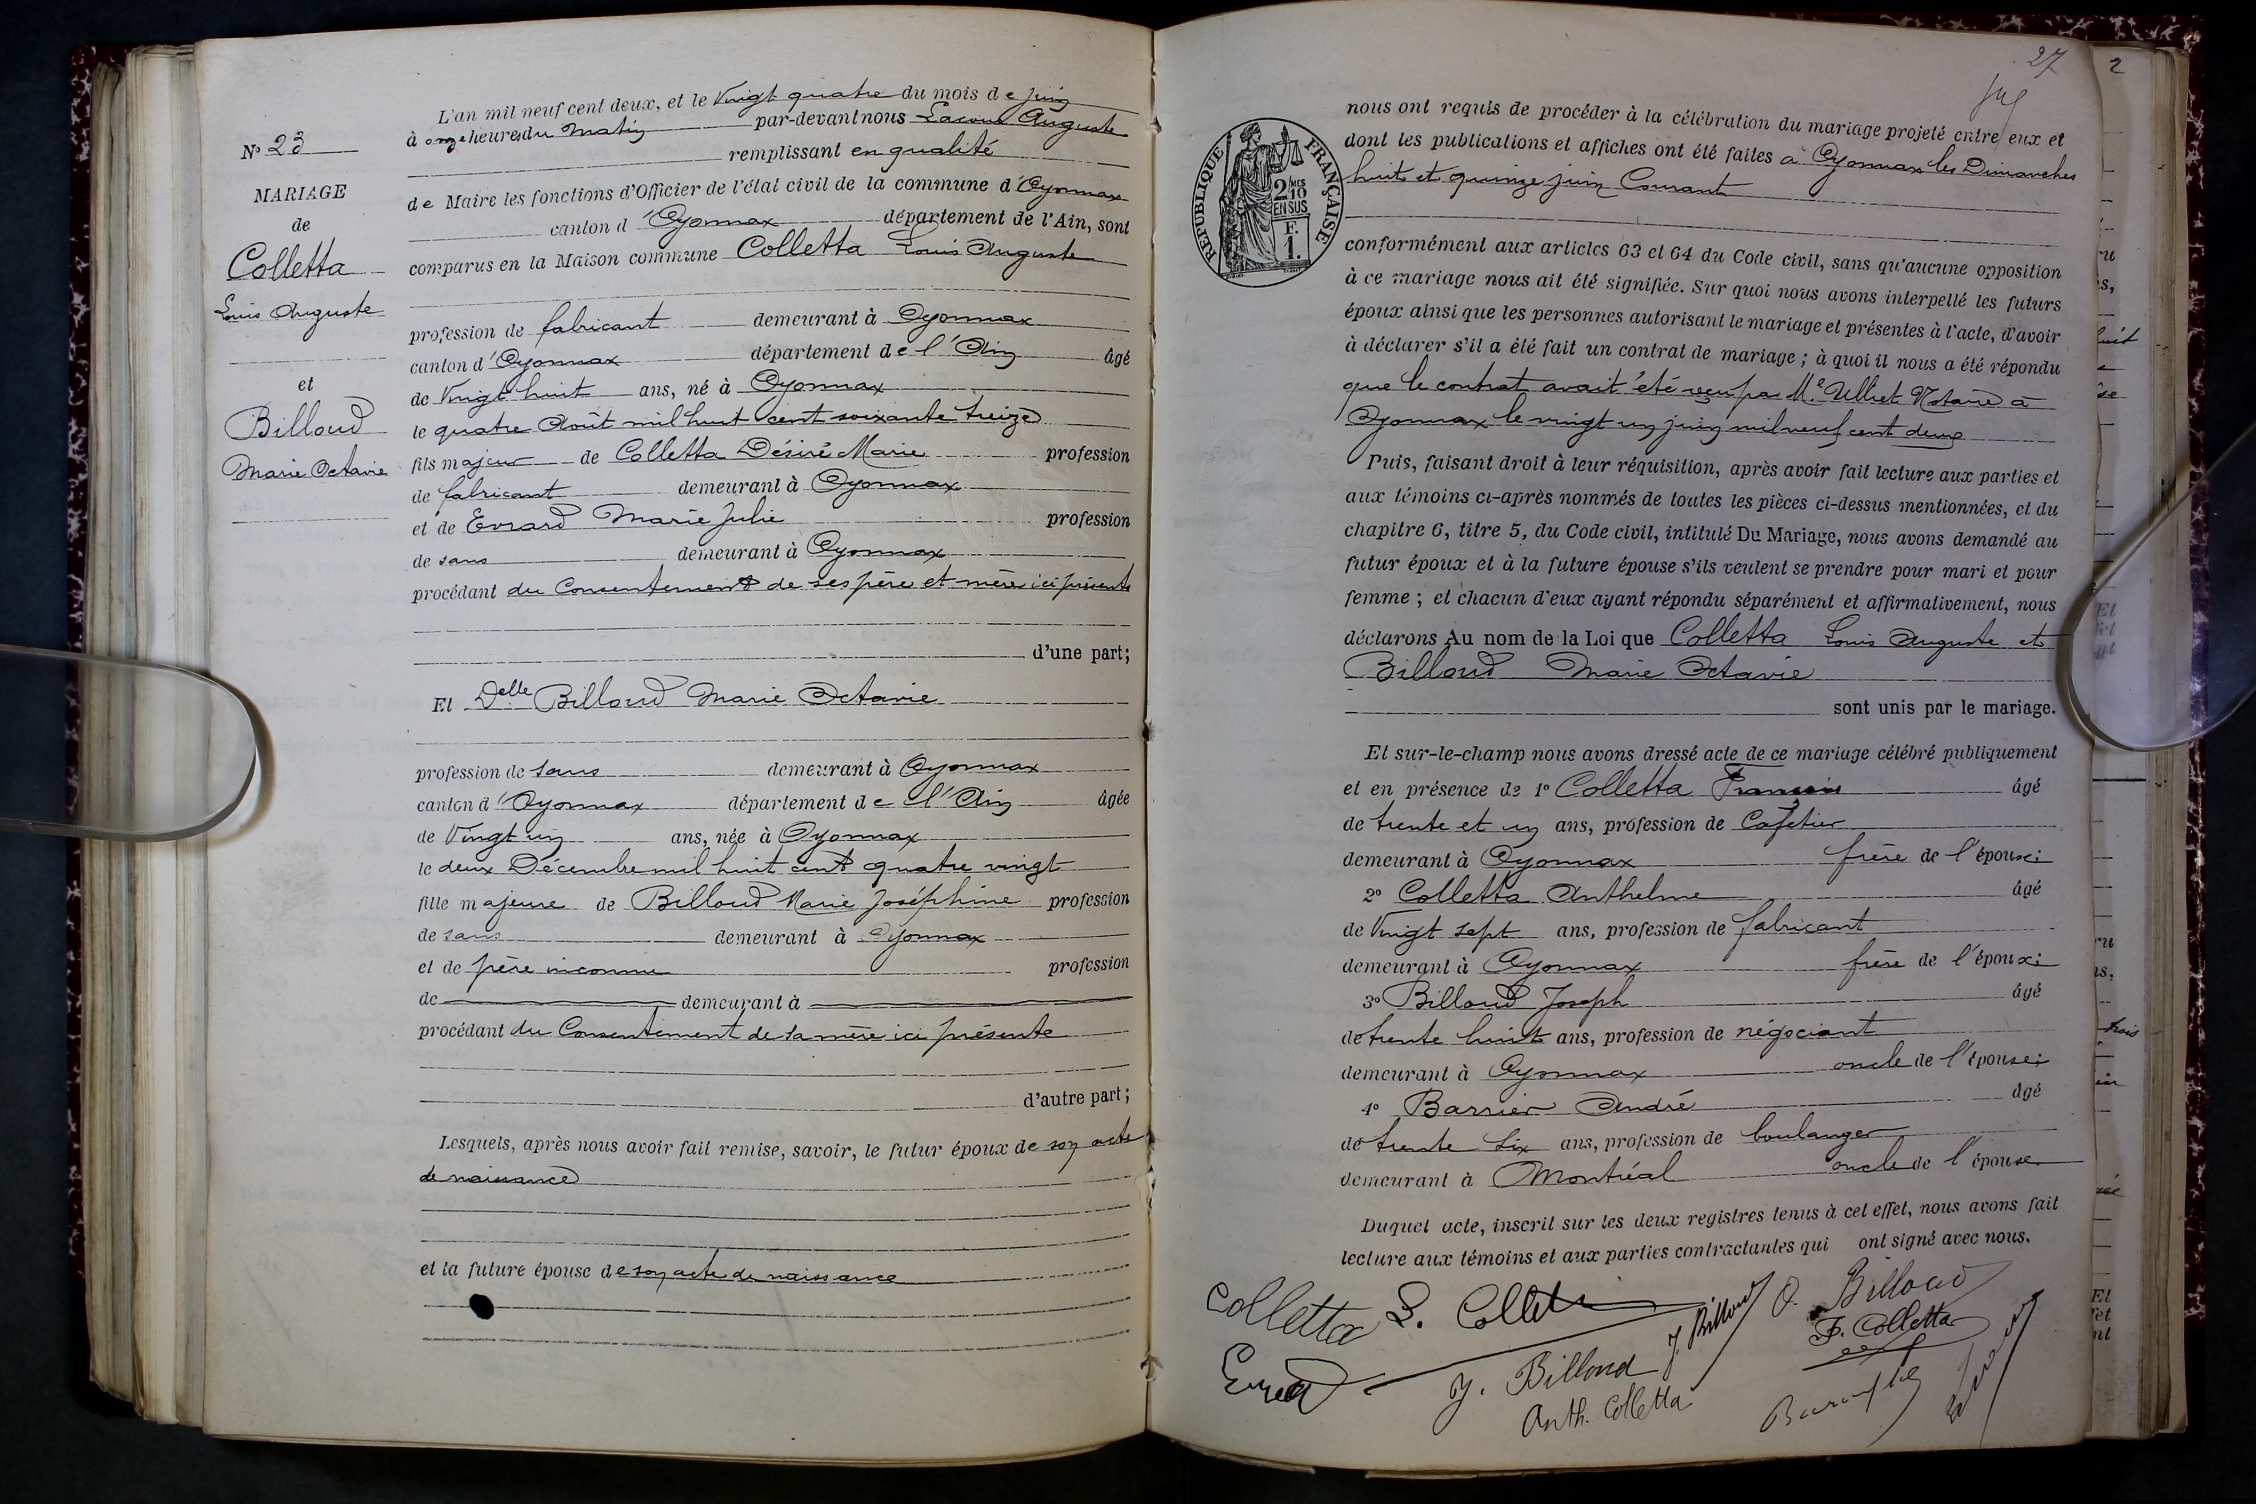 N° 23
MARIAGE
de
Colletta
Louis Auguste
et
Billoud
Marie Octavie
L'an mil neuf cent deux, et le Vingt quatre du mois de juin
à onze heures du Matin par-devant nous Lacour Auguste
remplissant en qualité
de Maire les fonctions d'Officier de l'état civil de la commune d'Oyonnax
canton d'Oyonnax département de l'Ain, sont
comparus en la Maison commune Colletta Louis Auguste
profession de fabricant demeurant à Oyonnax
canton d'Oyonnax département de l'Ain âgé
de Vingt huit ans, né à Oyonnax
le quatre Août mil huit cent soixante treize
fils majeur de Colletta Désiré Marie profession
de fabricant demeurant à Oyonnax
et de Evrard Marie Julie profession
de sans demeurant à Oyonnax
procédant du Consentement de ses père et mère ici présents
d'une part;
Et Delle Billoud Marie Octavie
profession de sans demeurant à Oyonnax
canton d'Oyonnax département de l'Ain âgée
de Vingt un ans, née à Oyonnax
le deux Décembre mil huit cent quatre vingt
fille majeure de Billoud Marie Joséphine profession
de sans demeurant à Oyonnax
et de père inconnu profession
de demeurant à
procédant du Consentement de sa mère ici présente
d'autre part;
Lesquels, après nous avoir fait remise, savoir, le futur époux de son acte
de naissance
et la future épouse de son acte de naissance
27
RÉPUBLIQUE FRANÇAISE
2/10 MES
EN SUS
F.
1.
nous ont requis de procéder à la célébration du mariage projeté entre eux et
dont les publications et affiches ont été faites à Oyonnax les Dimanches
huit et quinze juin Courant
conformément aux articles 63 et 64 du Code civil, sans qu'aucune opposition
à ce mariage nous ait été signifiée. Sur quoi nous avons interpellé les futurs
époux ainsi que les personnes autorisant le mariage et présentes à l'acte, d'avoir
à déclarer s'il a été fait un contrat de mariage; à quoi il nous a été répondu
que le contrat avait été reçu par Me Notaire à
Oyonnax le vingt un juin mil neuf cent deux
Puis, faisant droit à leur réquisition, après avoir fait lecture aux parties et
aux témoins ci-après nommés de toutes les pièces ci-dessus mentionnées, et du
chapitre 6, titre 5, du Code civil, intitulé Du Mariage, nous avons demandé au
futur époux et à la future épouse s'ils veulent se prendre pour mari et pour
femme; et chacun d'eux ayant répondu séparément et affirmativement, nous
déclarons Au nom de la Loi que Colletta Louis Auguste et
Billoud Marie Octavie
sont unis par le mariage.
Et sur-le-champ nous avons dressé acte de ce mariage célébré publiquement
et en présence de 1° Colletta François âgé
de trente et un ans, profession de Cafetier
demeurant à Oyonnax frère de l'époux;
2° Colletta Anthelme âgé
de Vingt sept ans, profession de fabricant
demeurant à Oyonnax frère de l'époux;
3° Billoud Joseph âgé
de trente huit ans, profession de négociant
demeurant à Oyonnax oncle de l'épouse;
4° Barrier André âgé
de trente six ans, profession de boulanger
demeurant à Montréal oncle de l'épouse
Duquel acte, inscrit sur les deux registres tenus à cet effet, nous avons fait
lecture aux témoins et aux parties contractantes qui ont signé avec nous.
Colletta L. Colletta J. Billoud O. Billoud
F. Colletta
J. Billoud
Anth. Colletta